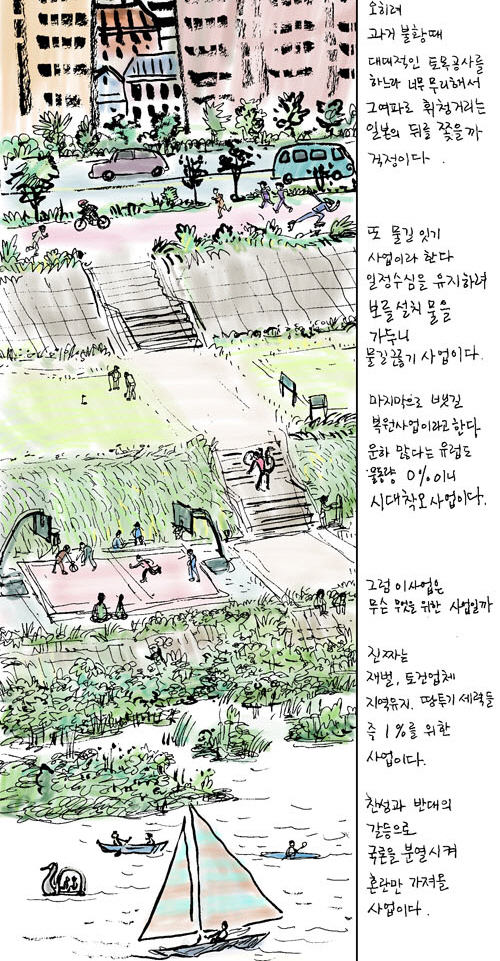 오히려
과거 불황때
대대적인 토목공사를
하느라 너무 무리해서
그여파로 휘청거리는
일본의 뒤를 쫓을까
걱정이다.
또 물길 잇기
사업이라 한다
일정수심을 유지하려
보를 설치 물을
가두니
물길끊기 사업이다.
마지막으로 뱃길
복원사업이라고한다
운하 많다는 유럽도
물동량 0%이니
시대착오사업이다.
그럼 이사업은
무슨 무엇을 위한 사업일까
진짜는
재벌, 토건업체
지역유지, 땅투기 세력들
즉 1%를 위한
사업이다.
찬성과 반대의
갈등으로
국론을 분열시켜
혼란만 가져올
사업이다.